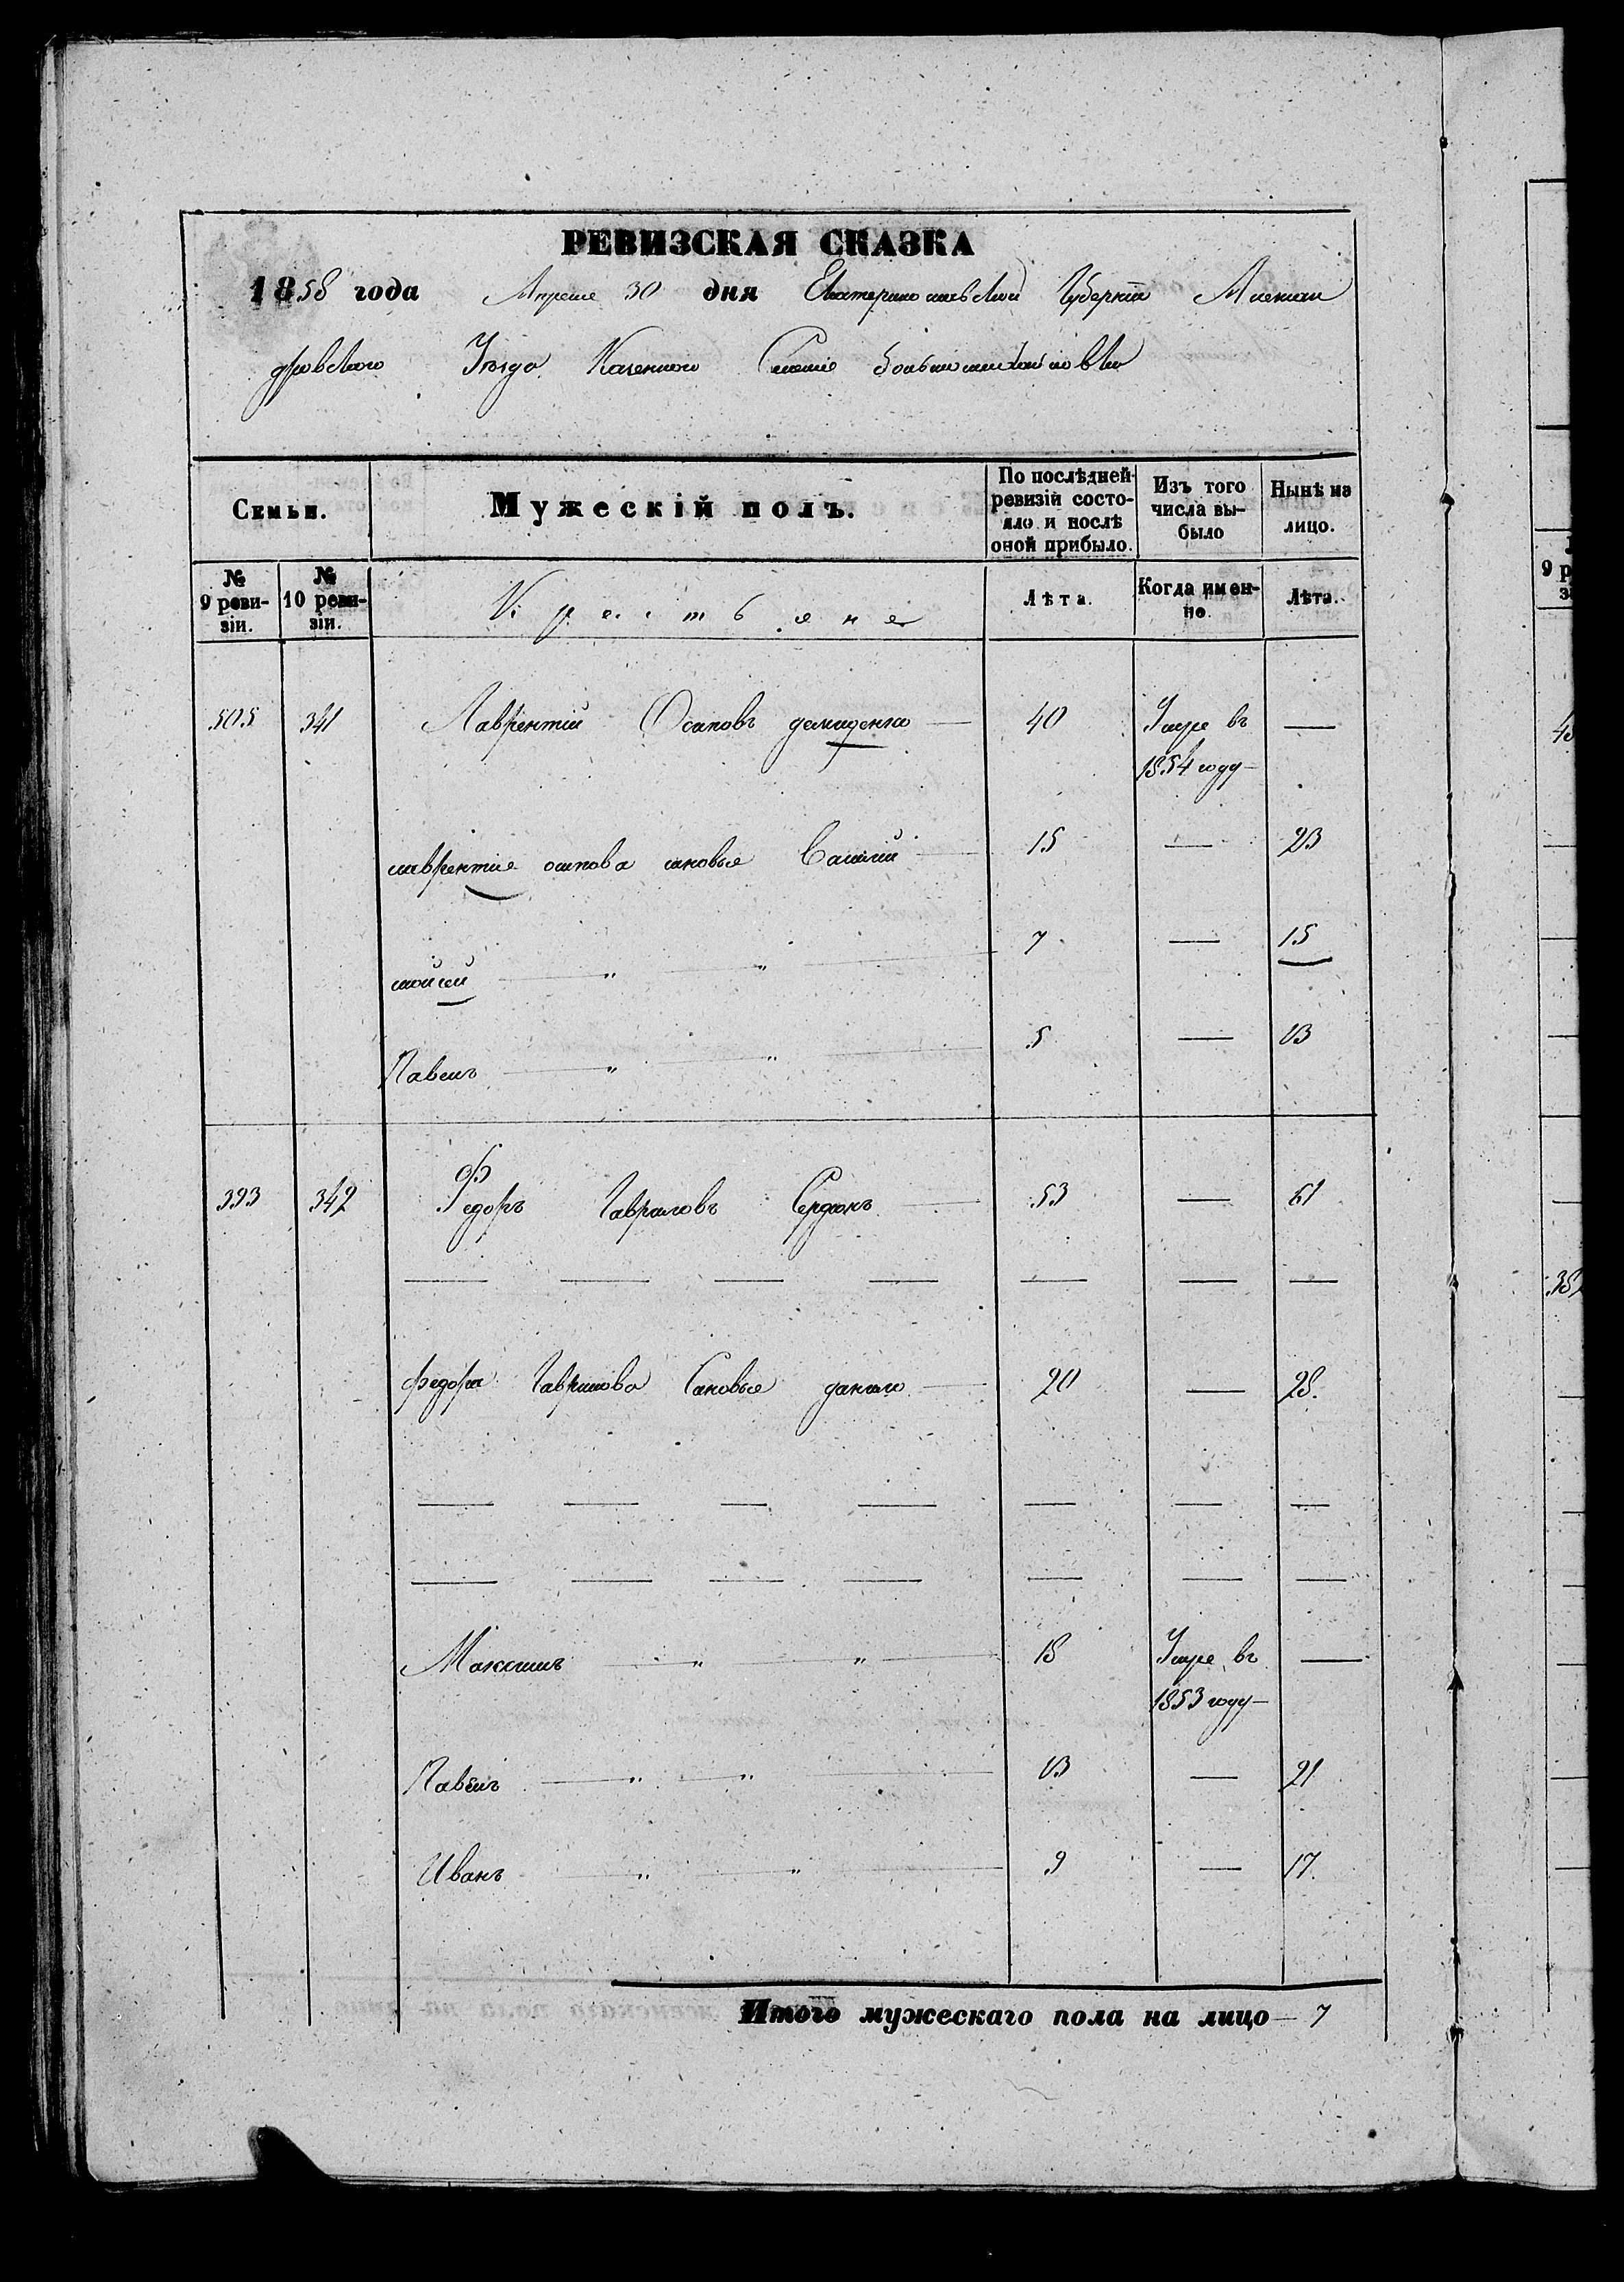 РЕВИЗСКАЯ СКАЗКА
1858 года Апреля 30 дня Екатеринославской Губернии Алексан
дровского Уѣзда Казенного Селенія Большомихайловки
Семьи.
Мужескій полъ.
По послѣдней ревизіи состояло и послѣ оной прибыло.
Изъ того числа выбыло
Нынѣ на лицо.
№ 9 ревизіи.
№ 10 ревизіи.
Крестьяне
Лѣта.
Когда именно.
Лѣта.
505 341 Лаврентій Осиповъ демиденко — 40 Умре въ 1854 году —
лаврентія осипова сыновья Василий — 15 — 23
мойсей — " — " — 7 — 15
Павелъ — " — " — 5 — 13
393 342 Федоръ Гавриловъ Сердюкъ — 53 — 61
федора Гаврилова Сыновья данило — 20 — 28.
Максимъ — " — " — 18 Умре въ 1853 году —
Павелъ — " — " — 13 — 21
Иванъ — " — " — 9 — 17.
Итого мужескаго пола на лицо — 7
9 р